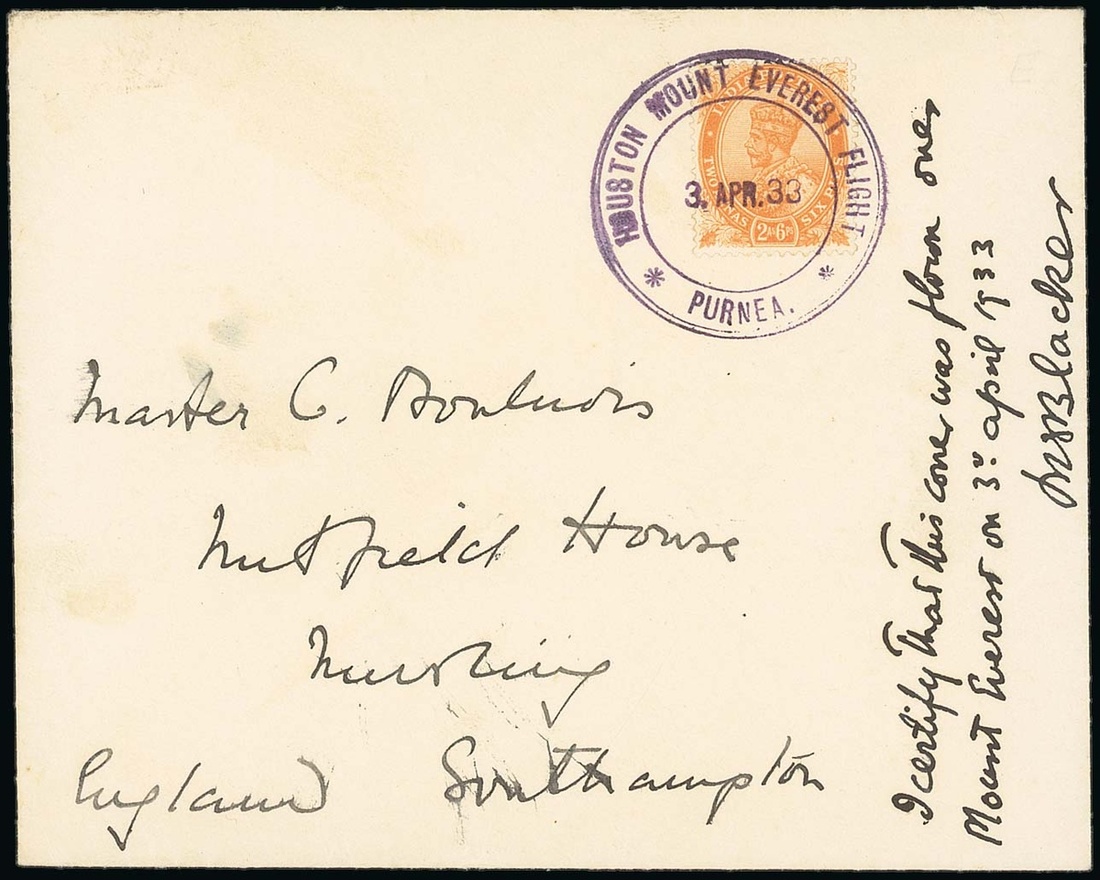 HOUSTON MOUNT EVEREST FLIGHT
3. APR. 33
* PURNEA. *
2As6Ps
Master C.
Nutfield House
Nursling
England Southampton
I certify that this cover was flown over
Mount Everest on 3rd april 1933
Blacker